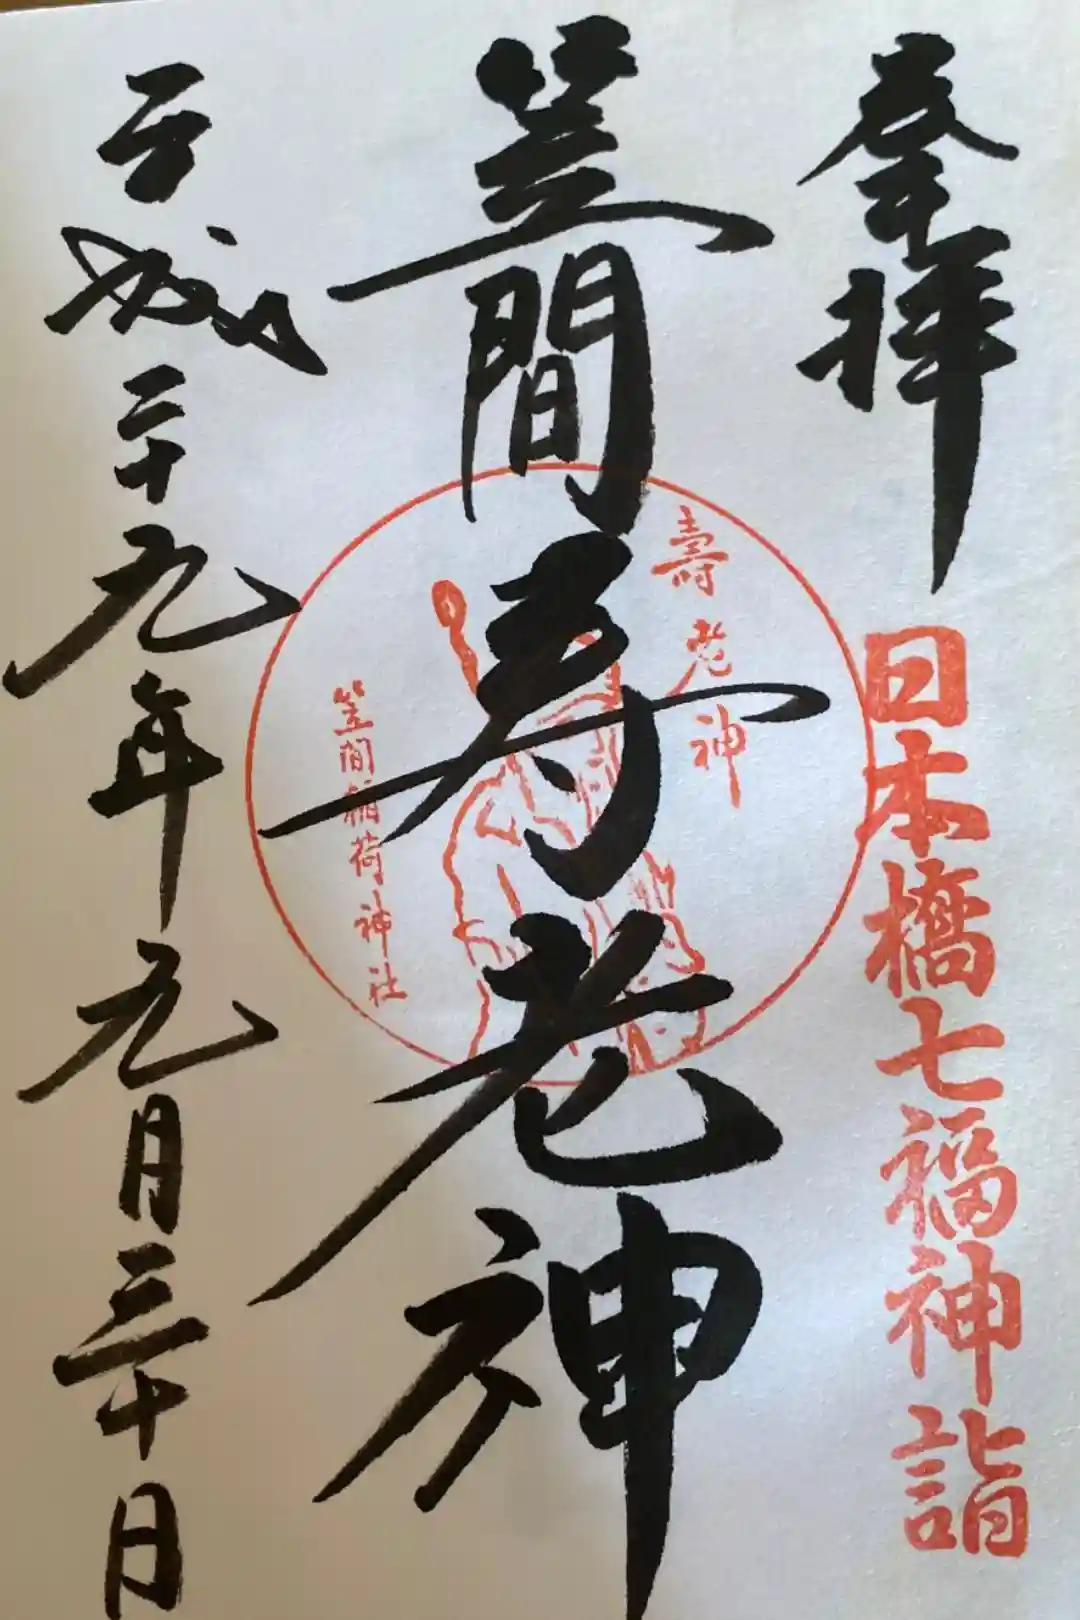 奉拝
日本橋七福神詣
笠間寿老神
壽老神
笠間稲荷神社
平成二十九年九月三十日